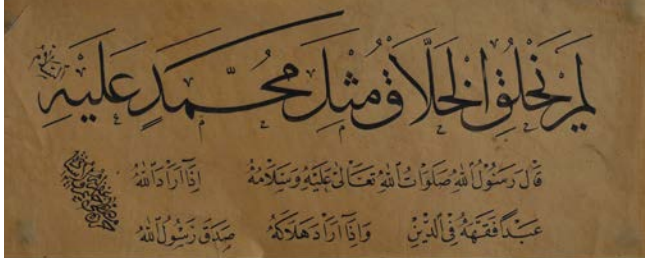 لم يخلق الخلاق مثل محمد عليه
قال رسول الله صلوات الله تعالى عليه وسلامه اذا اراد الله
عبدا فقهه في الدين واذا اراد هلاكه صدق رسول الله